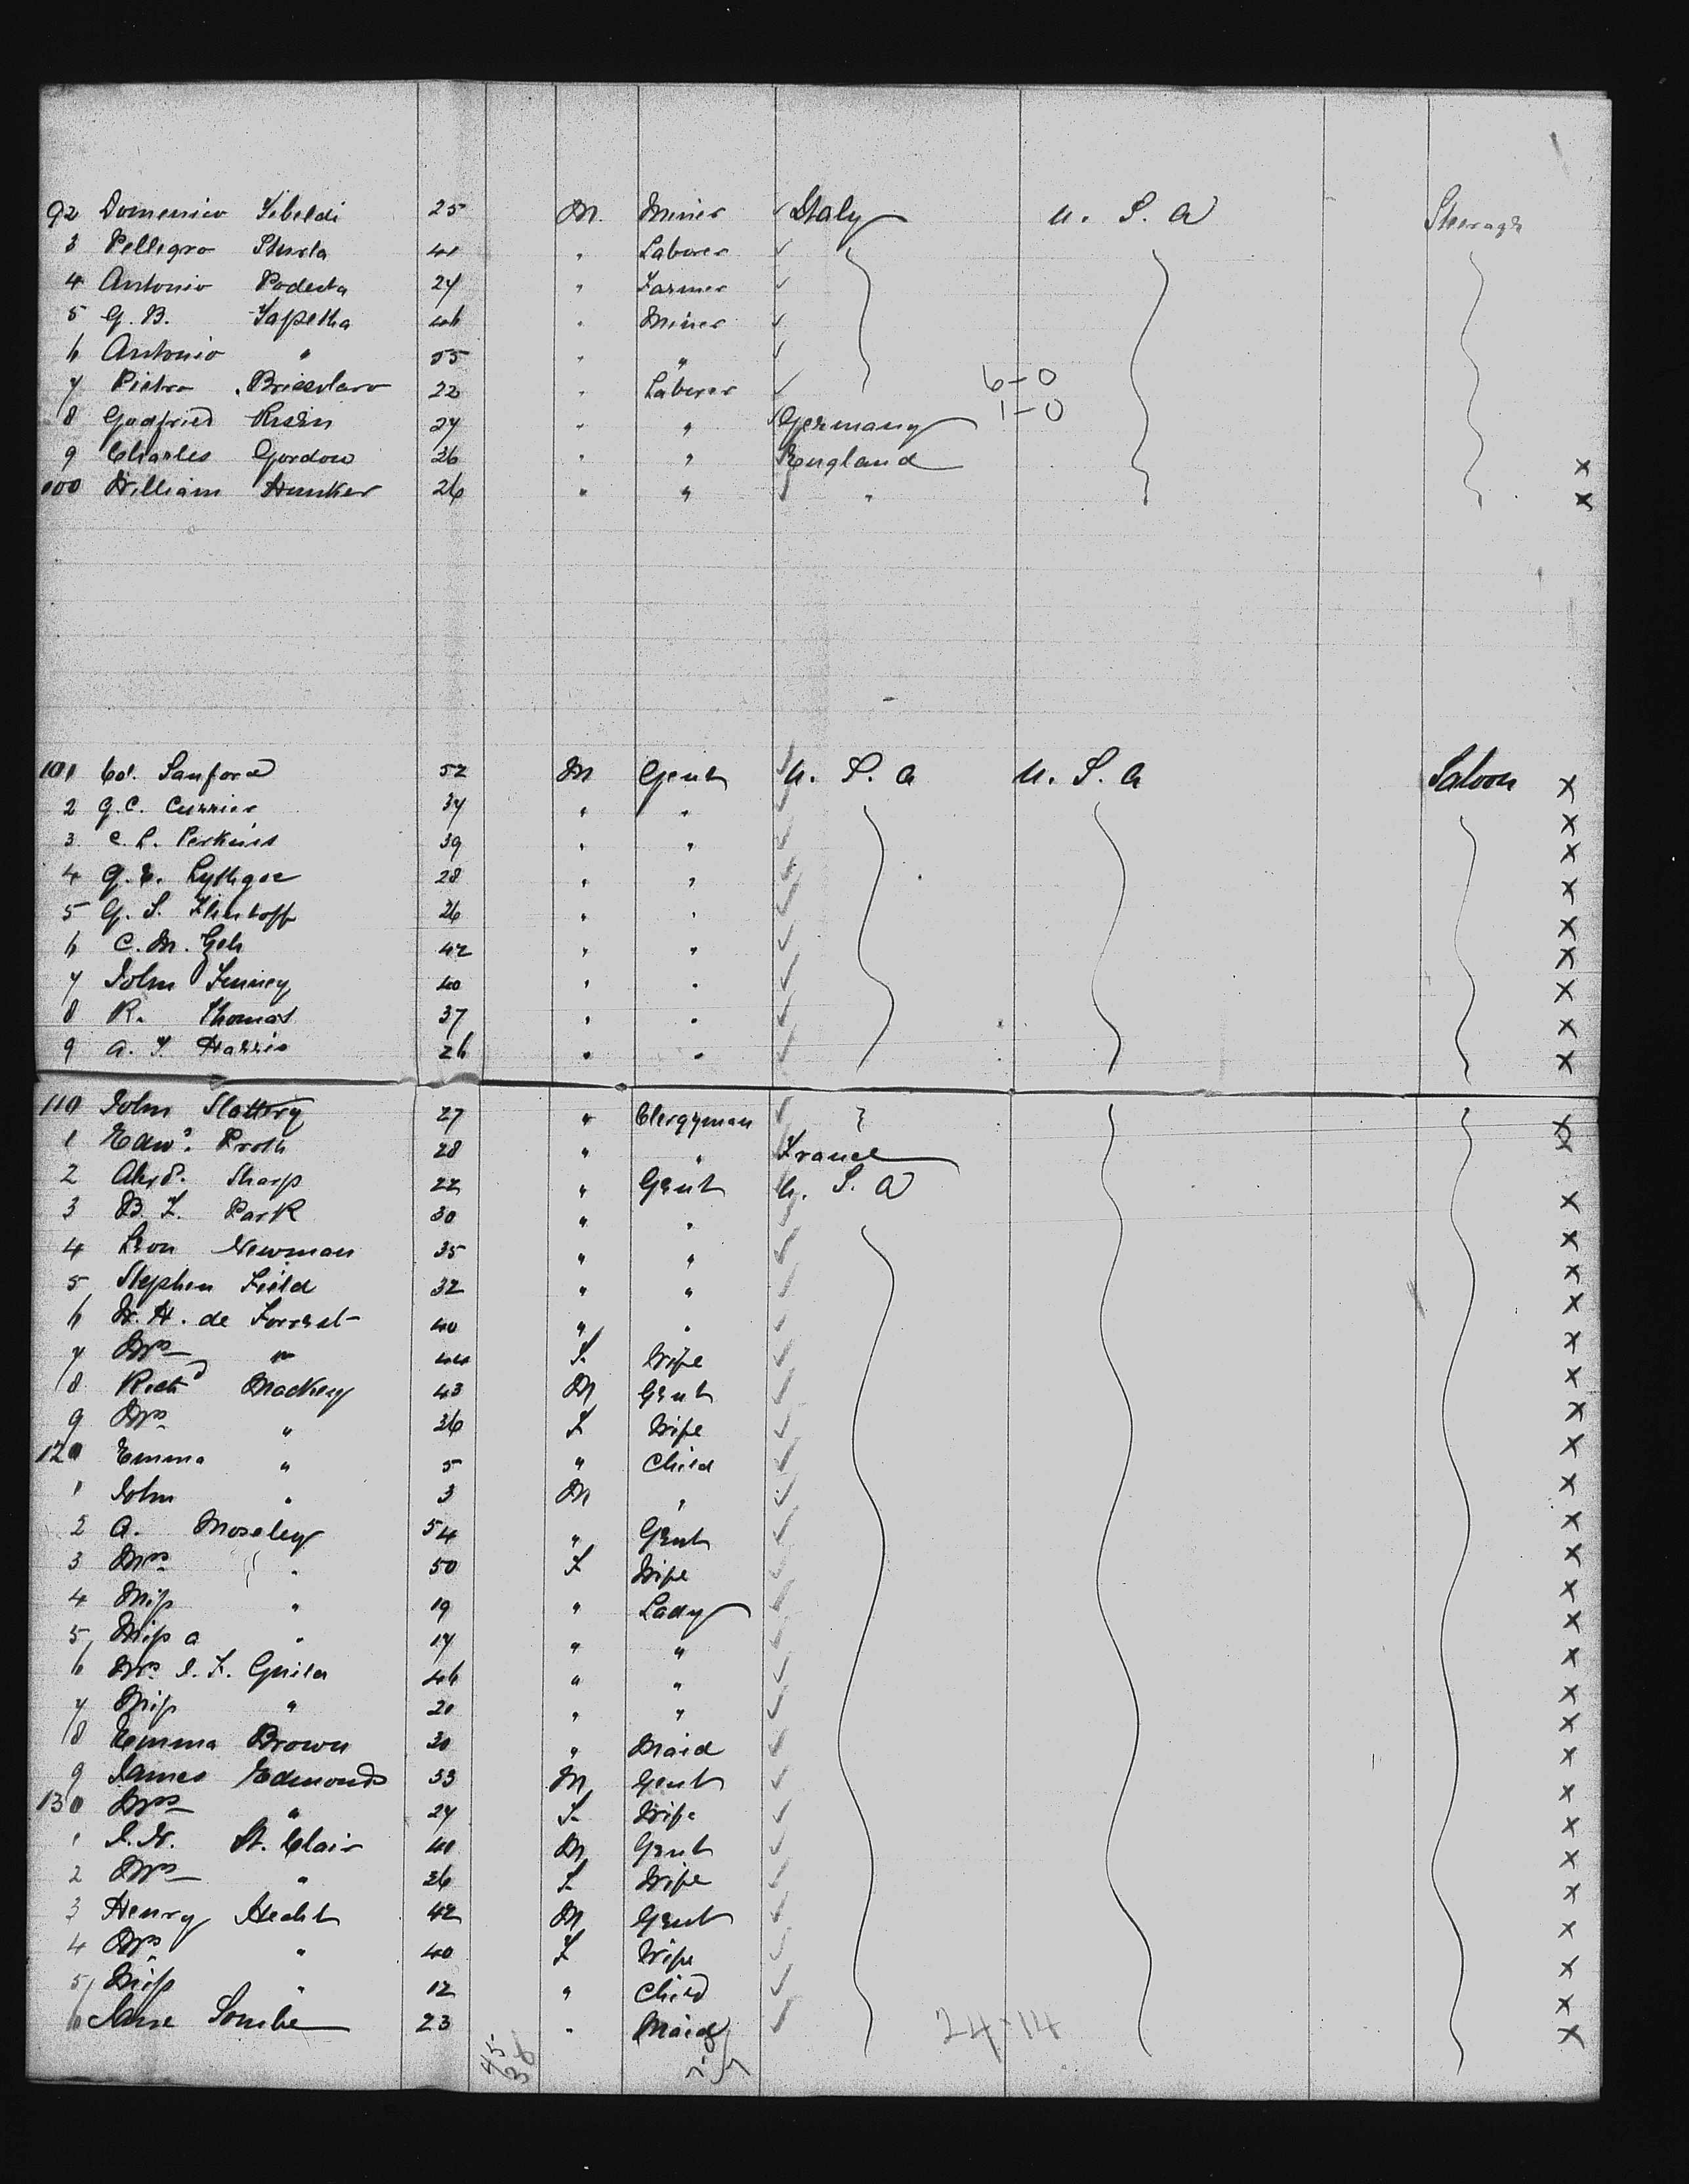 92 Domenico Sibeldi 25 M. Miner Italy U. S. A Steerage
3 Pellegro Sturla 41 " Laborer
4 Antonio Podesta 24 " Farmer
5 G. B. 46 " Miner
6 Antonio " 55 " "
7 Pietro 22 " Laborer 6-0
8 Godfried 27 " " Germany 1-0
9 Charles Gordon 36 " " England x
100 William Hunker 26 " " " x
101 Col. Sanford 52 M Gent U. S. A U. S. A Saloon x
2 G. C. Currier 37 " " x
3 C. L. Perkins 39 " " x
4 G. E. Lythgoe 28 " " x
5 G. S. Flintoff 36 " " x
6 C. M. 42 " " x
7 John Finney 40 " " x
8 R. Thomas 37 " " x
9 A. T. Harris 26 " " x
110 John Slattery 27 " Clergyman x
1 Edwd. Proth 28 " " France
2 Alexd. Sharp 22 " Gent U. S. A x
3 B. F. Park 30 " " x
4 Leon Newman 35 " " x
5 Stephen Field 32 " " x
6 W. H. de Forrest 40 " " x
7 Mrs " 44 F. Wife x
8 Richd Mackey 43 M Gent x
9 Mrs " 36 F Wife x
120 Emma " 5 " Child x
1 John " 3 M " x
2 A. Moseley 54 " Gent x
3 Mrs " 50 F Wife x
4 Miss " 19 " Lady x
5 Miss A " 17 " " x
6 Mrs. I. F. Guild 46 " " x
7 Miss " 20 " " x
8 Emma Brown 30 " Maid x
9 James Edmonds 33 M Gent x
130 Mrs " 27 F. Wife x
1 I. W. St. Clair 40 M Gent x
2 Mrs " 36 F Wife x
3 Henry Hecht 42 M Gent x
4 Mrs " 40 F Wife x
5 Miss " 12 " Child x
6 Jane 23 " Maid 24-14 x
45
36